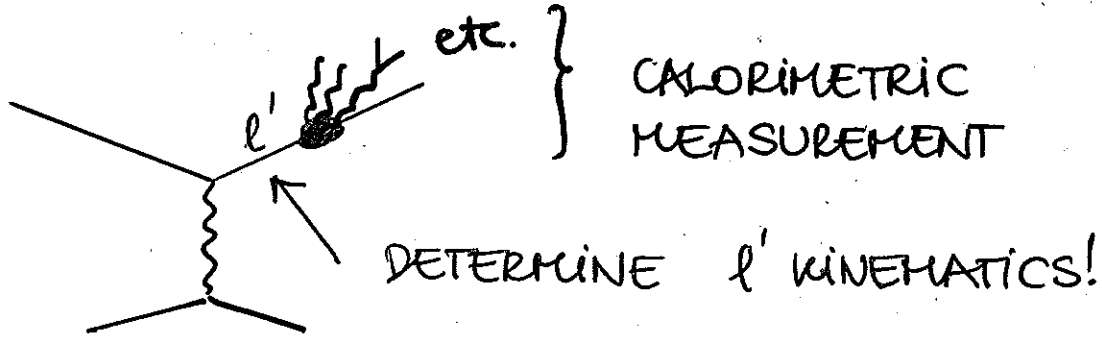 etc.
CALORiMETRiC
MEASUREMENT
l'
DETERMINE l' KiNEMATiCS!